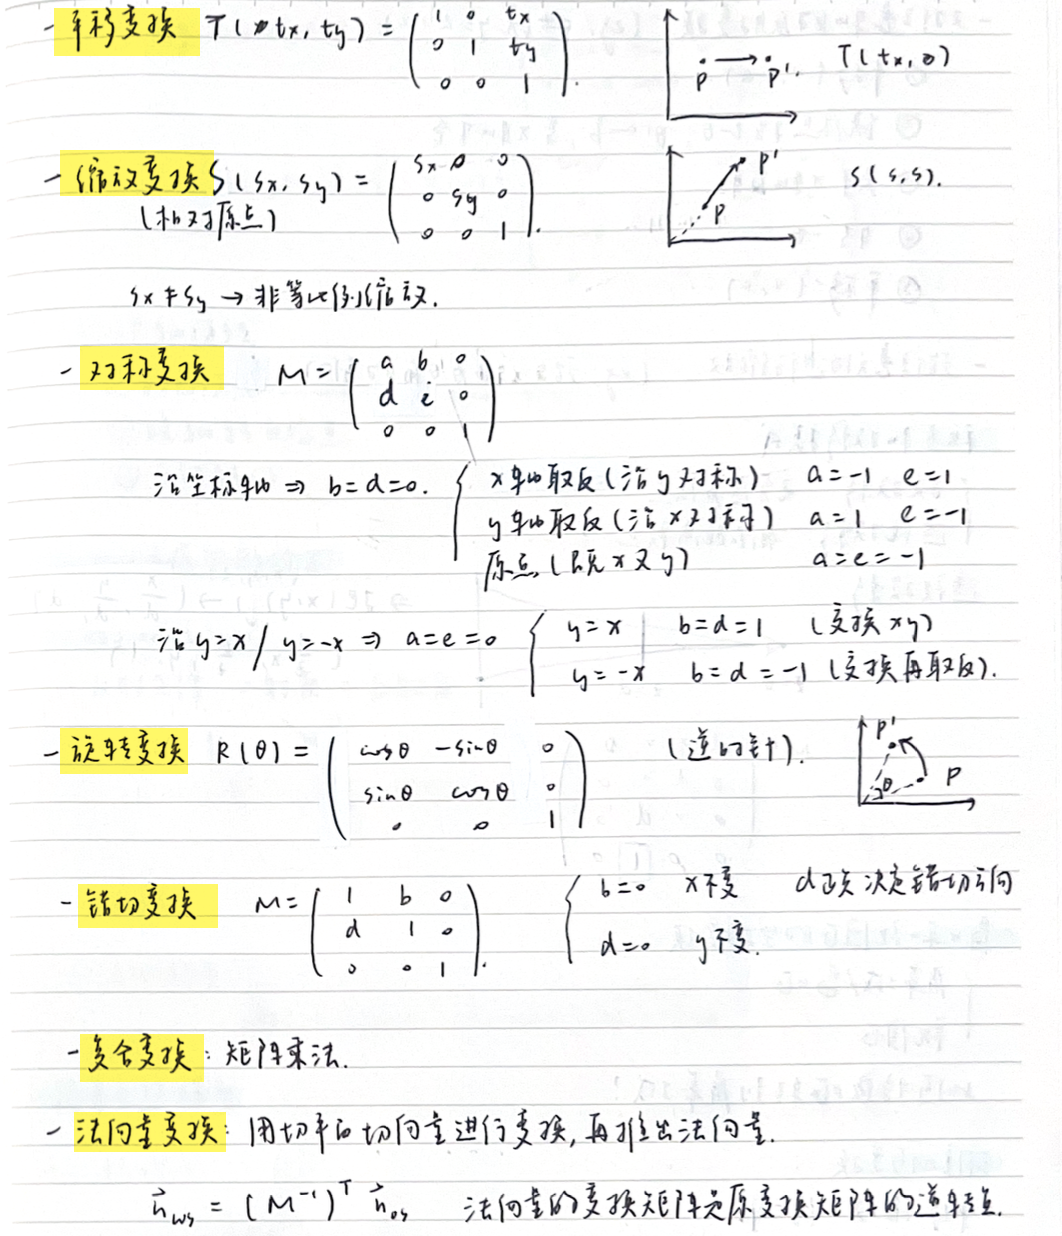 - 平移变换 T(tx, ty) = ( 1 0 tx
0 1 ty
0 0 1 ).
P → P'. T(tx, 0)
- 缩放变换 S(sx, sy) = ( sx 0 0
(相对原点) 0 sy 0
0 0 1 ).
P P' S(s, s).
sx ≠ sy → 非等比例缩放.
- 对称变换 M = ( a b 0
d e 0
0 0 1 )
沿坐标轴 ⇒ b=d=0. { x轴取反(沿y对称) a=-1 e=1
y轴取反(沿x对称) a=1 e=-1
原点(既x又y) a=e=-1
沿y=x / y=-x ⇒ a=e=0 { y=x b=d=1 (变换xy)
y=-x b=d=-1 (变换再取反).
- 旋转变换 R(θ) = ( cosθ -sinθ 0
sinθ cosθ 0
0 0 1 )
(逆时针).
P' θ P
- 错切变换 M = ( 1 b 0
d 1 0
0 0 1 ).
{ b=0 x不变 d正负决定错切方向
d=0 y不变.
- 复合变换: 矩阵乘法.
- 法向量变换: 用切平面切向量进行变换, 再推出法向量.
n⃗ws = (M⁻¹)ᵀ n⃗os 法向量的变换矩阵是原变换矩阵的逆转置.